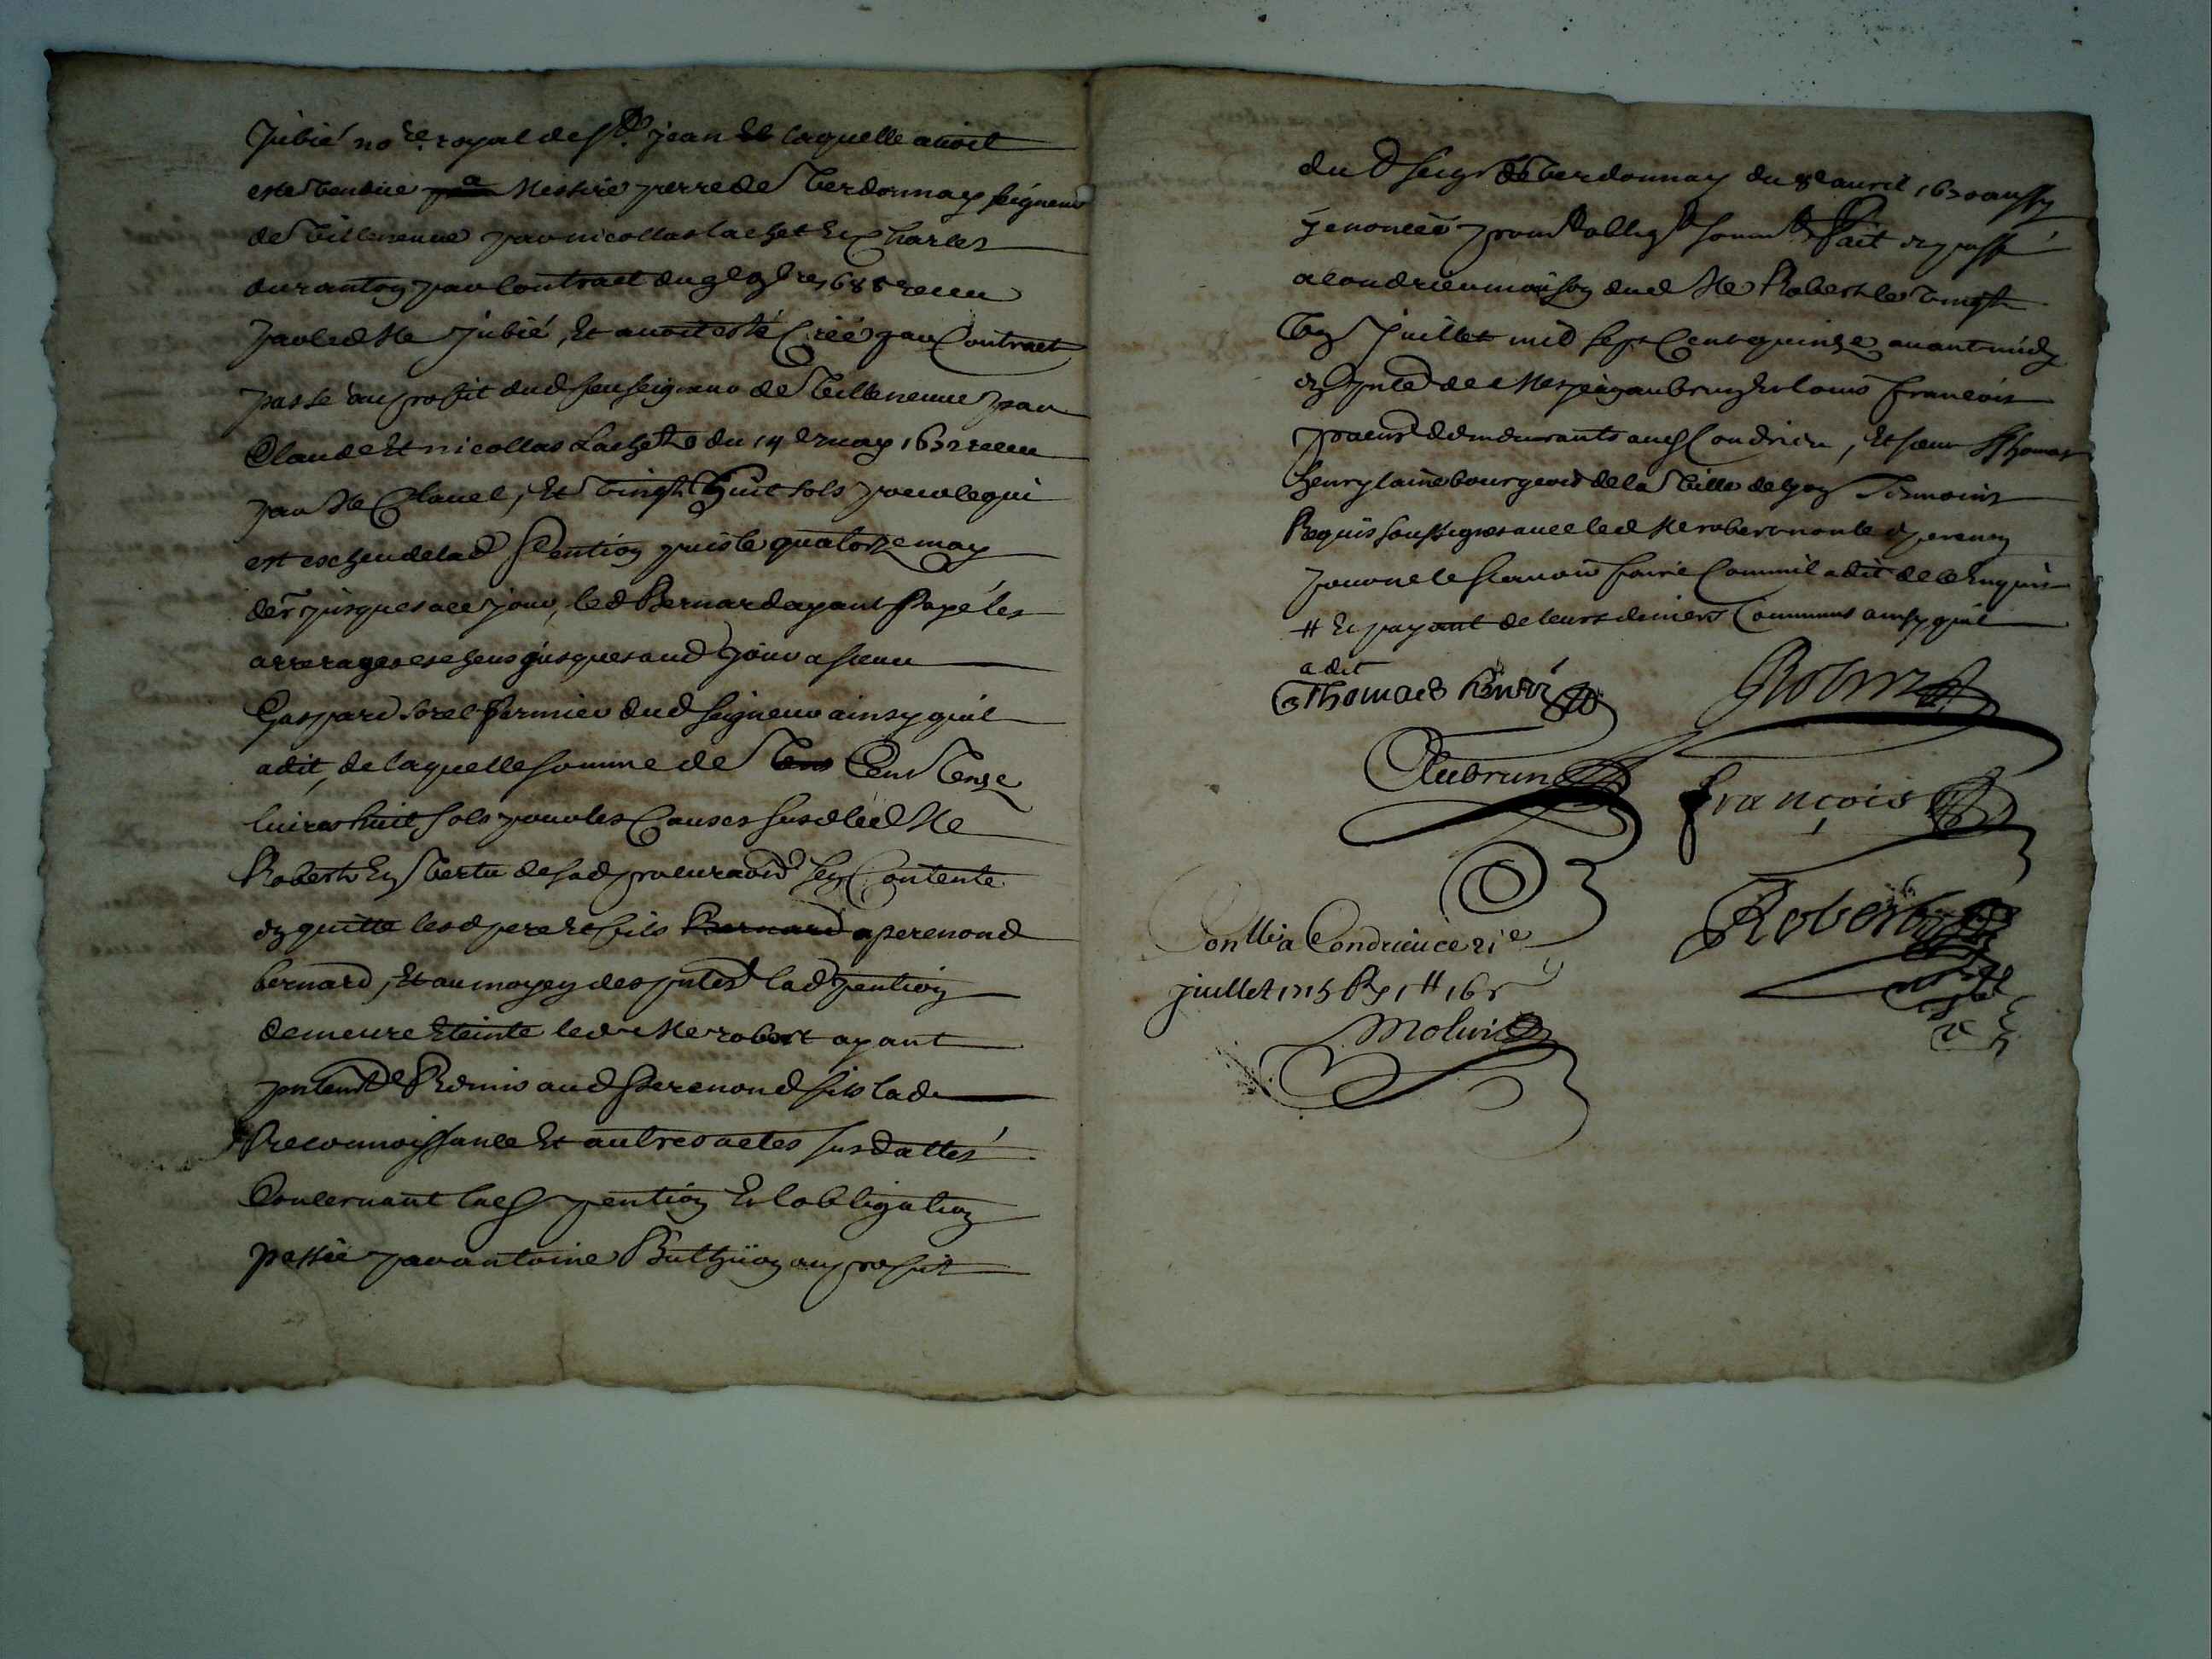 Jubié no.re royal de St. jean Et laquelle avoit
esté vendüe a Messire pierre de Verdonnay seigneur
de Villeneuve par nicollas lachet Et Charles
duranton par Contract du 9e 9bre 1688 receu
par led Me Jubié, Et avoit esté Créé par Contract
passé au proffit dud feu seigneur de Villeneuve par
Claude Et nicollas Lachet du 14e may 1632 receu
par Me Clavel, Et vingt huit sols pour ce qui
est escheu de lad Pention puis le quatorze may
der jusques a ce jour, led Bernard ayant Payé les
arrerages escheus jusques aud jour a sieur
Gaspard sorel fermier dud seigneur ainsy quil
a dit, de laquelle somme de Cent Onze
livres huit sols pour les Causes susd led Me
Robert En vertu de sad procuraon sen Contente
Et quitte lesd pere et fils Bernard a perenond
bernard, Et au moyen des pntes lad pention
demeure Eteinte led Me robert ayant
pntemt Remis aud perenond fils lad
Reconnoissance Et autres actes sus dattés
Concernant lad pention Et lobligation
passée par antoine Buthion au profit
du d seigr de Verdonnay du 8e avril 1630 aussy
Enoncée promt obligt soumt Fait Et passé
a Condrieu maison dud Me Robert le vingt
un Juillet mil sept Cent quinze avant midy
En pnce de Me jean aubrun Et louis françois
pratns demeurants aud Condrieu, Et sieur Thomas
henry laine bourgeois de la Ville de lyon Temoins
Requis soussignes avec led Me robert non led perenon
pour ne le scavoir faire Comm'il a dit de ce Enquis
# Et payant de leurs deniers Communs ainsy quil
a dit
Thomas henri
Robin
Aubrun
françois
Robert
Conllé a Condrieu ce 21e
juillet 1715 R 1# 16s
Molin